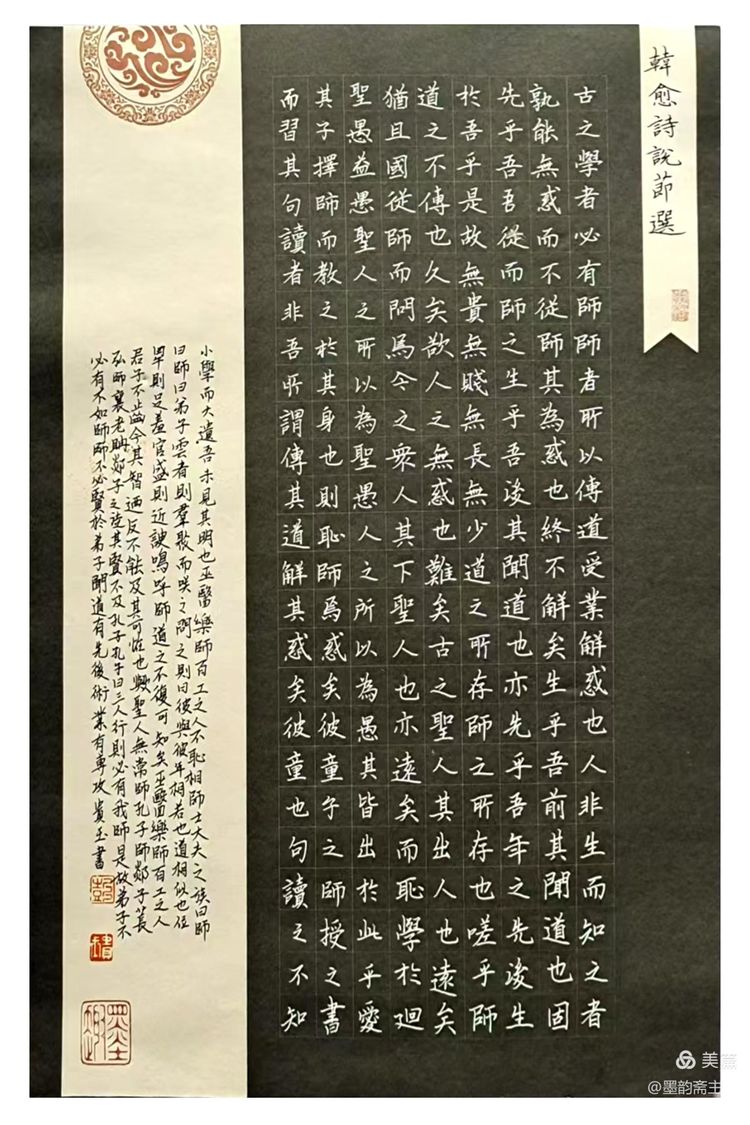 韓愈詩說節選
古之學者必有師師者所以傳道受業解惑也人非生而知之者
孰能無惑而不從師其為惑也終不解矣生乎吾前其聞道也固
先乎吾吾從而師之生乎吾後其聞道也亦先乎吾年之先後生
於吾乎是故無貴無賤無長無少道之所存師之所存也嗟乎師
道之不傳也久矣欲人之無惑也難矣古之聖人其出人也遠矣
猶且國從師而問焉今之衆人其下聖人也亦遠矣而恥學於迴
聖愚益愚聖人之所以為聖愚人之所以為愚其皆出於此乎愛
其子擇師而教之於其身也則恥師焉惑矣彼童子之師授之書
而習其句讀者非吾所謂傳其道解其惑矣彼童也句讀之不知
小學而大遺吾未見其明也巫醫樂師百工之人不恥相師士大夫之族曰師
曰師曰弟子雲者則羣聚而咲之問之則曰彼與彼年相若也道相似也位
卑則足羞官盛則近諛嗚呼師道之不復可知矣巫醫樂師百工之人
君子不齒今其智迺反不能及其可怪也歟聖人無常師孔子師郯子萇
弘師襄老聃郯子之徒其賢不及孔子孔子曰三人行則必有我師是故弟子不
必有不如師師不必賢於弟子聞道有先後術業有專攻貴玉書
美篇
@墨韵斋主